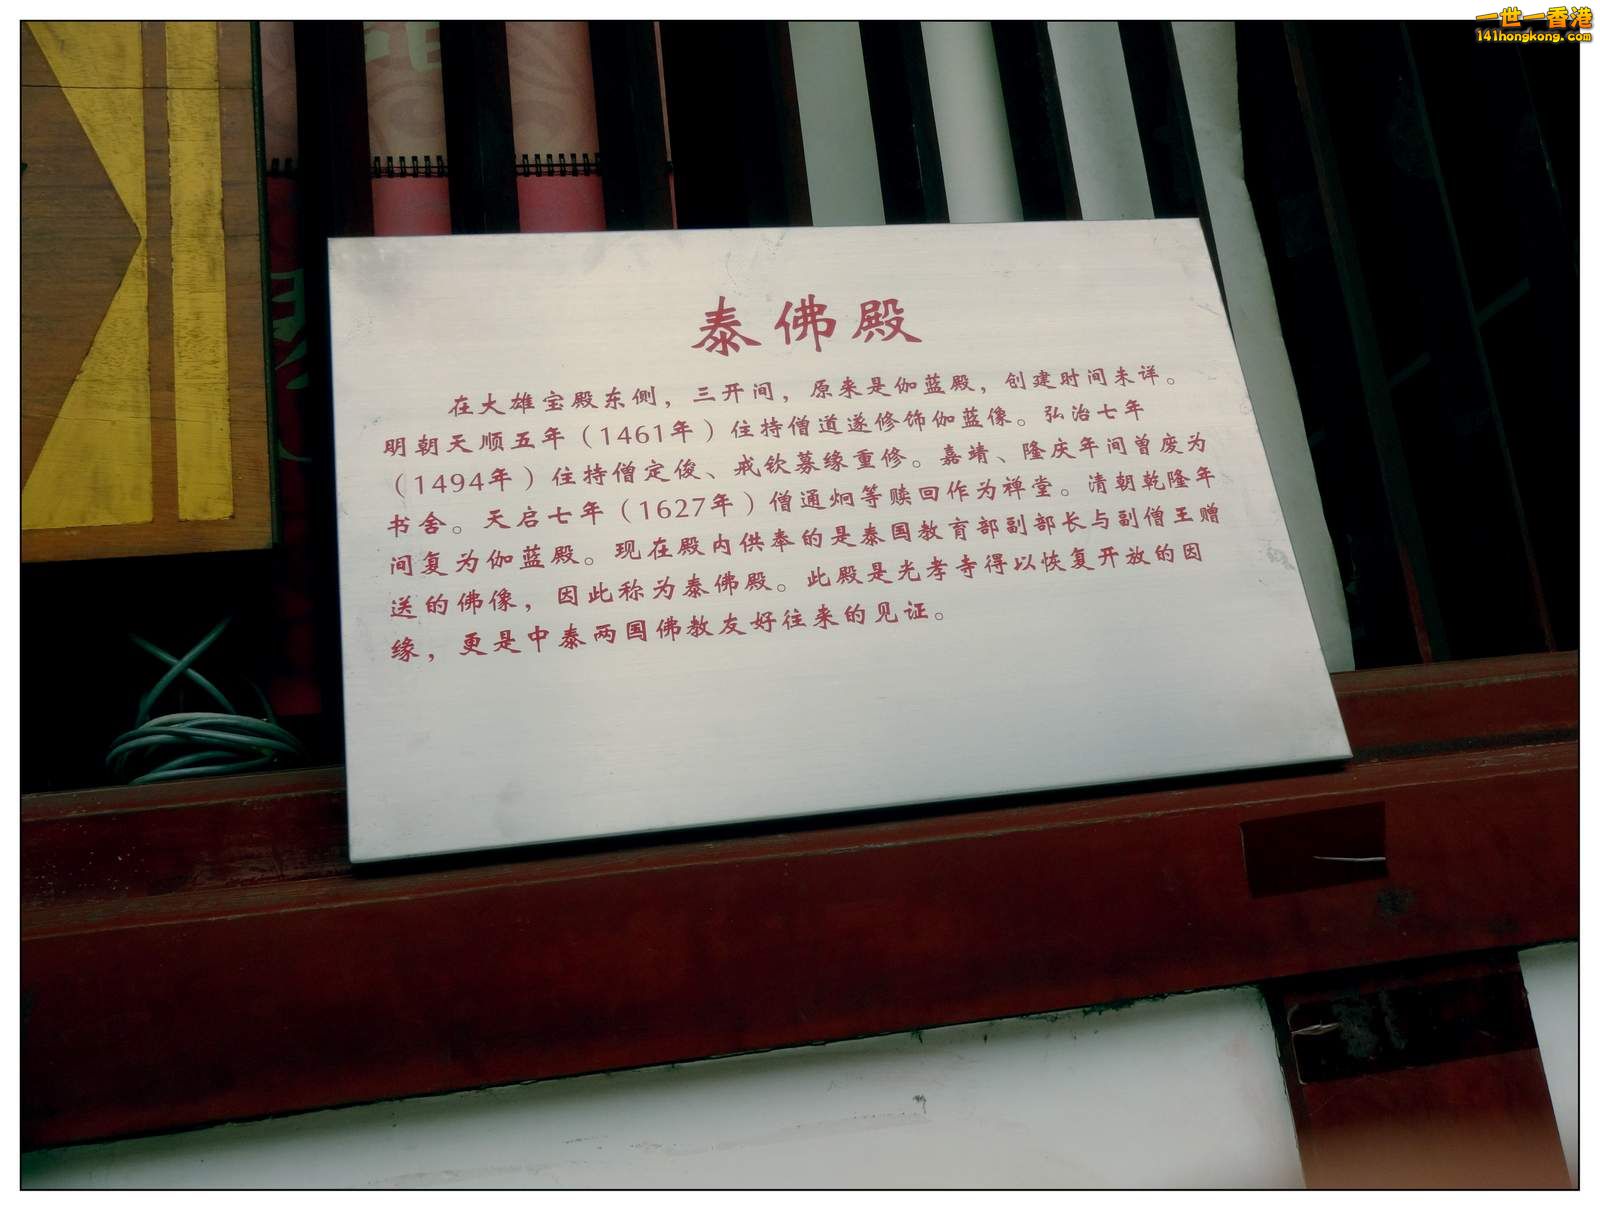 一世一香港
141hongkong.com
泰佛殿
在大雄宝殿东侧，三开间，原来是伽蓝殿，创建时间未详。
明朝天顺五年（1461年）住持僧道遂修饰伽蓝像。弘治七年
（1494年）住持僧定俊、戒钦募缘重修。嘉靖、隆庆年间曾废为
书舍。天启七年（1627年）僧通炯等赎回作为禅堂。清朝乾隆年
间复为伽蓝殿。现在殿内供奉的是泰国教育部副部长与副僧王赠
送的佛像，因此称为泰佛殿。此殿是光孝寺得以恢复开放的因
缘，更是中泰两国佛教友好往来的见证。